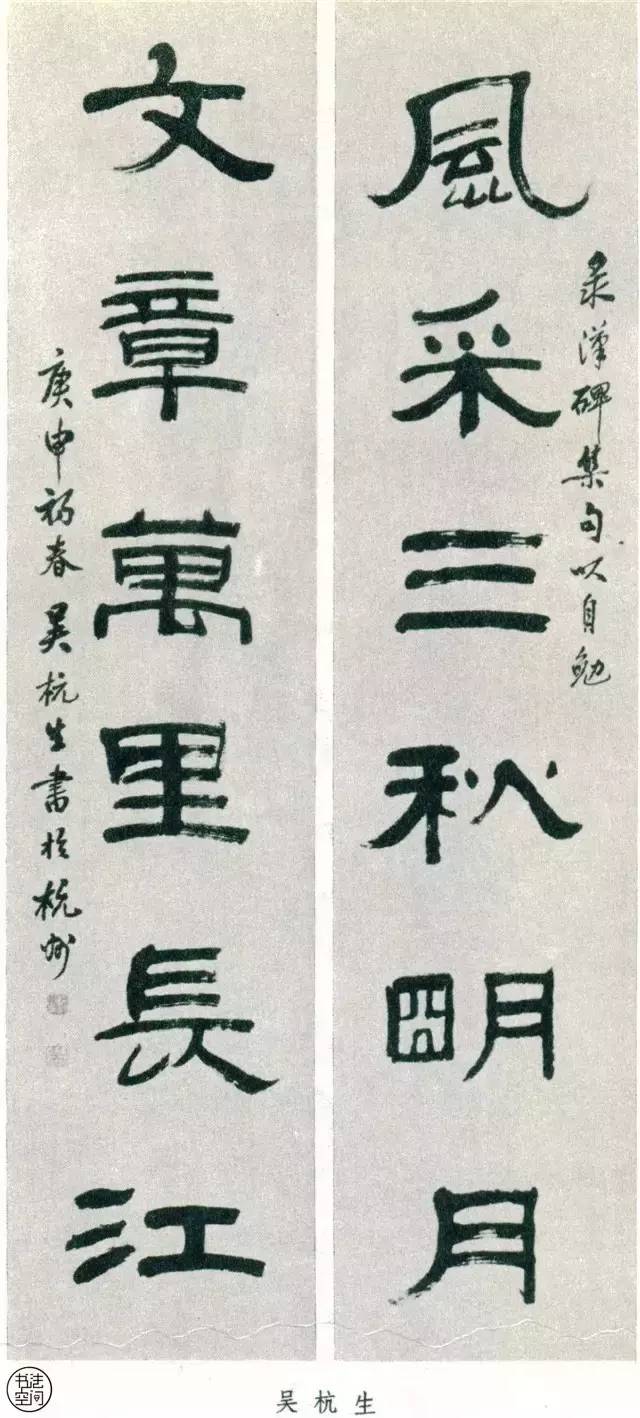 風采三秋明月
录漢碑集句以自勉
文章萬里長江
庚申初春吴杭生書於杭州
吴杭生
书法空间